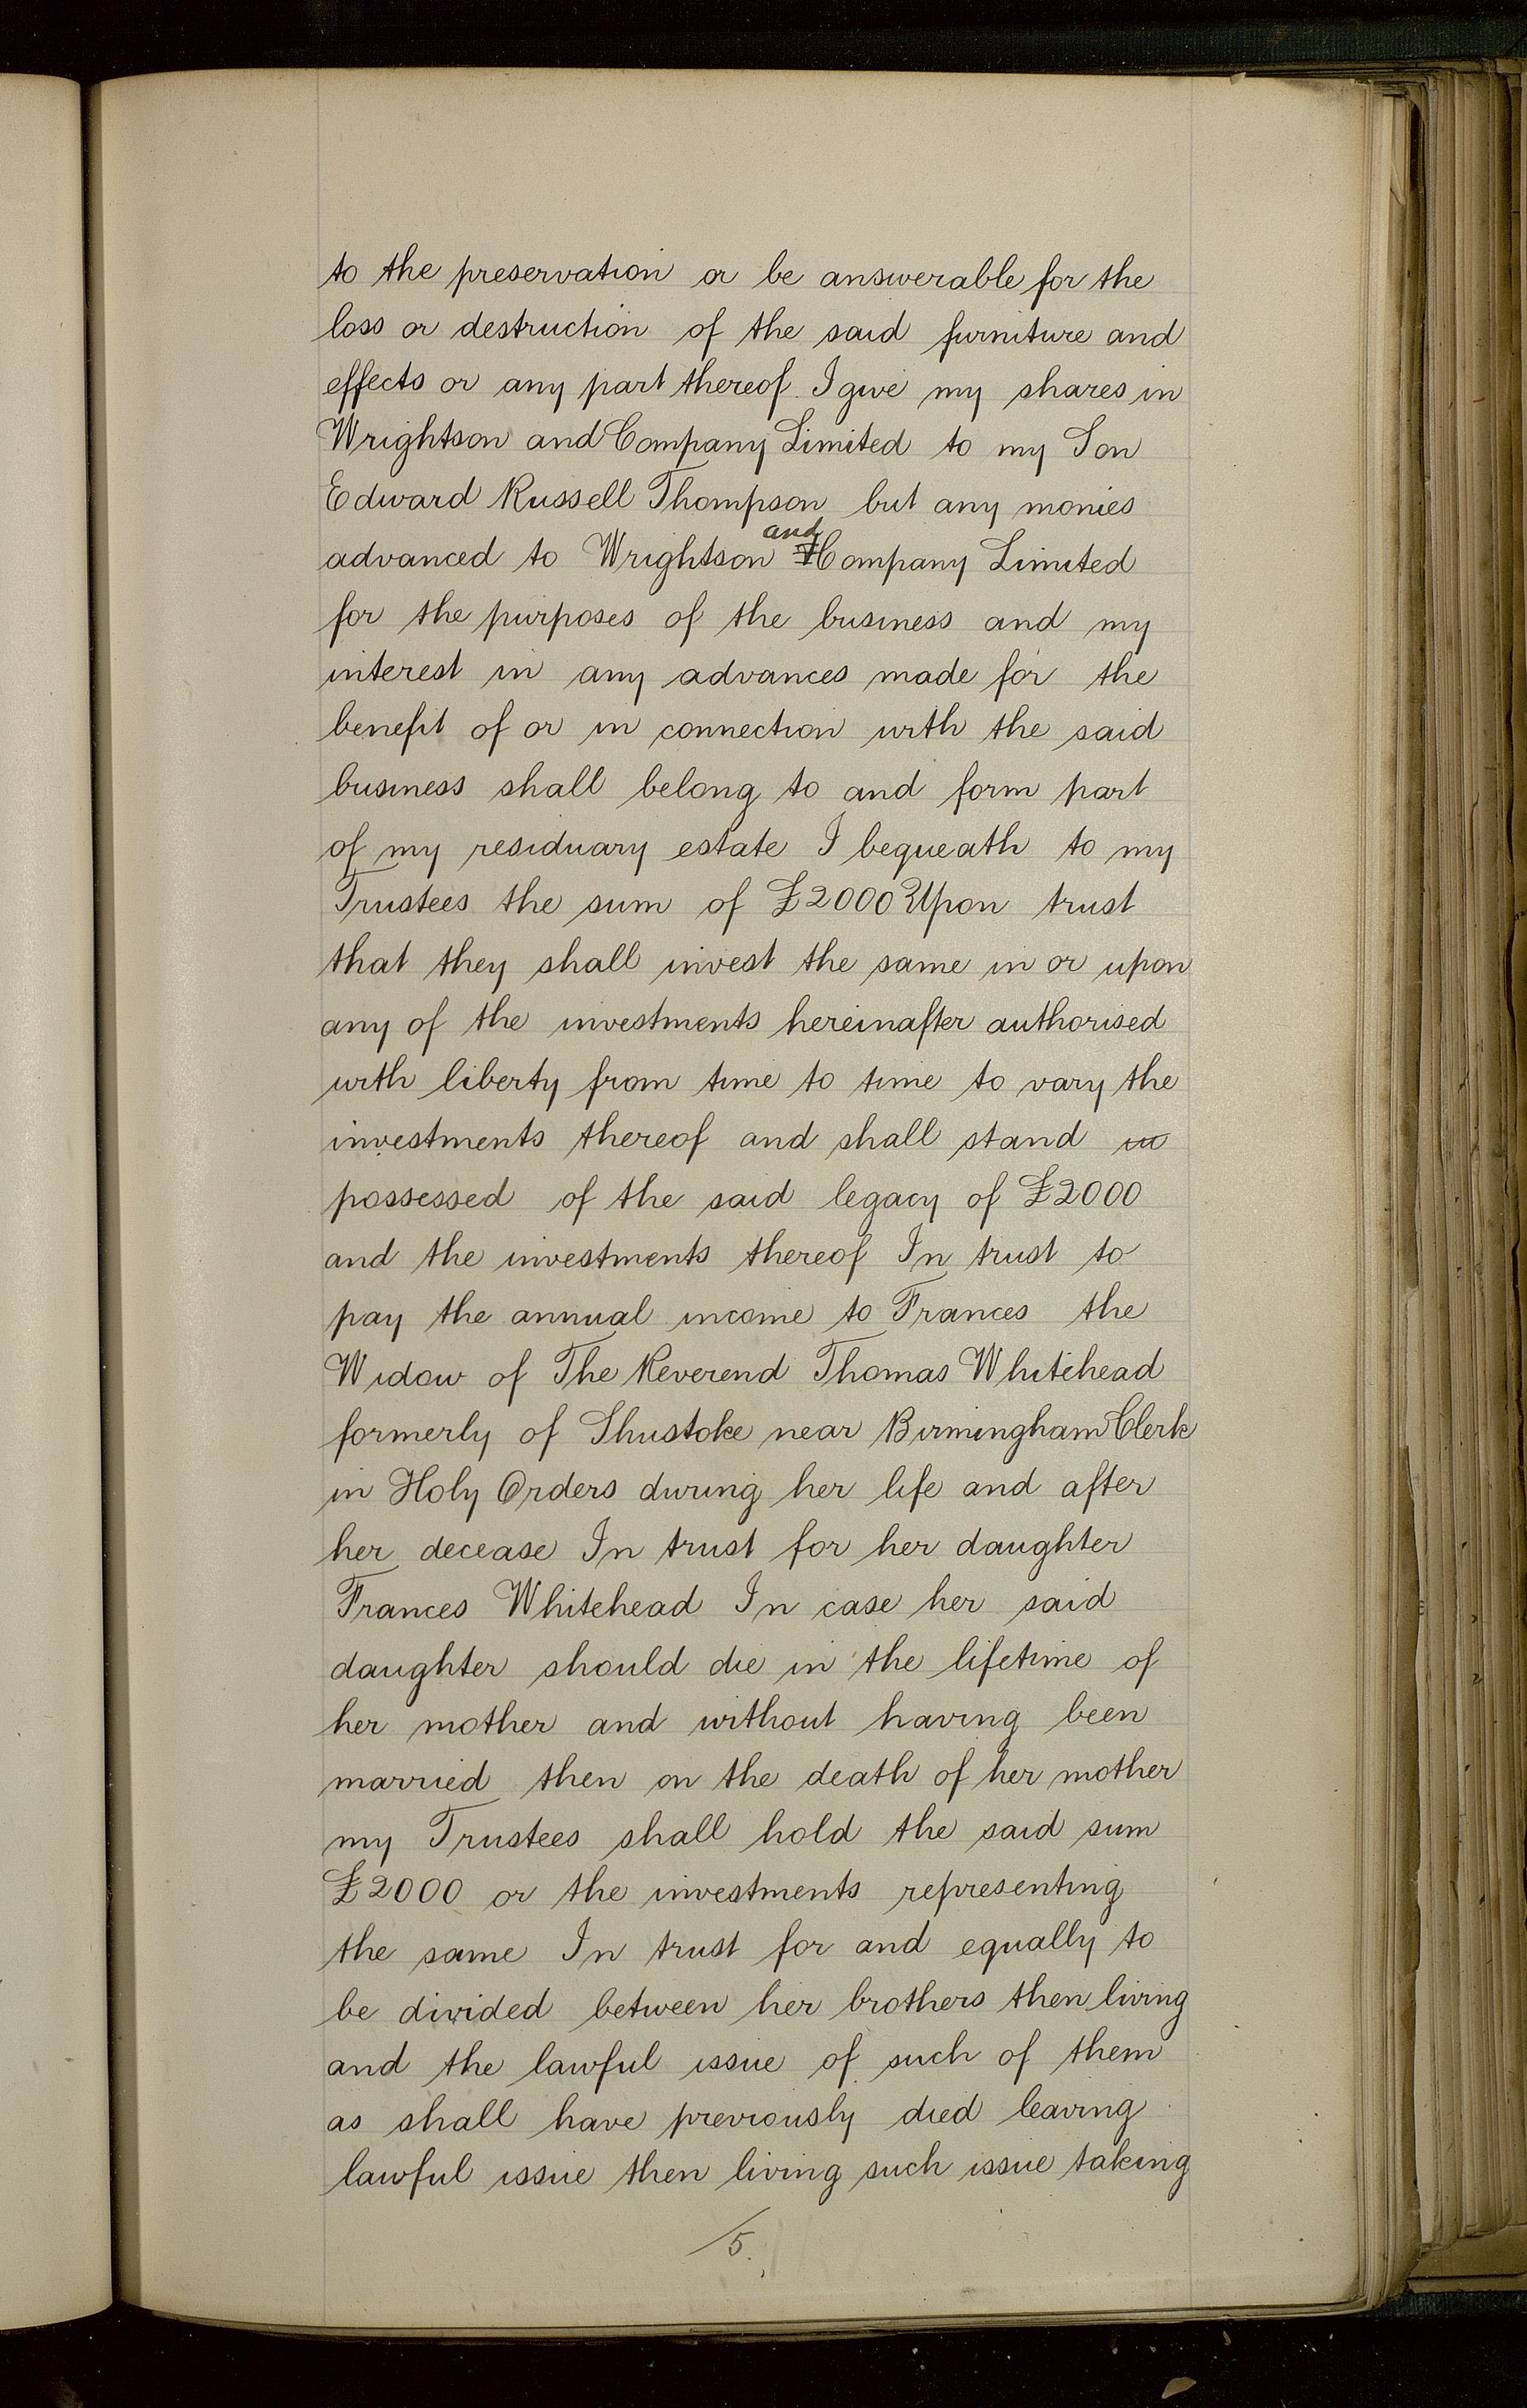 to the preservation or be answerable for the
loss or destruction of the said furniture and
effects or any part thereof. I give my shares in
Wrightson and Company Limited to my Son
Edward Russell Thompson but any monies
and
advanced to Wrightson Company Limited
for the purposes of the business and my
interest in any advances made for the
benefit of or in connection with the said
business shall belong to and form part
of my residuary estate I bequeath to my
Trustees the sum of £2000 Upon trust
that they shall invest the same in or upon
any of the investments hereinafter authorised
with liberty from time to time to vary the
investments thereof and shall stand in
possessed of the said legacy of £2000
and the investments thereof In trust to
pay the annual income to Frances the
Widow of The Reverend Thomas Whitehead
formerly of Shustoke near Birmingham Clerk
in Holy Orders during her life and after
her decease In trust for her daughter
Frances Whitehead In case her said
daughter should die in the lifetime of
her mother and without having been
married then on the death of her mother
my Trustees shall hold the said sum
£2000 or the investments representing
the same In trust for and equally to
be divided between her brothers then living
and the lawful issue of such of them
as shall have previously died leaving
lawful issue then living such issue taking
/5.